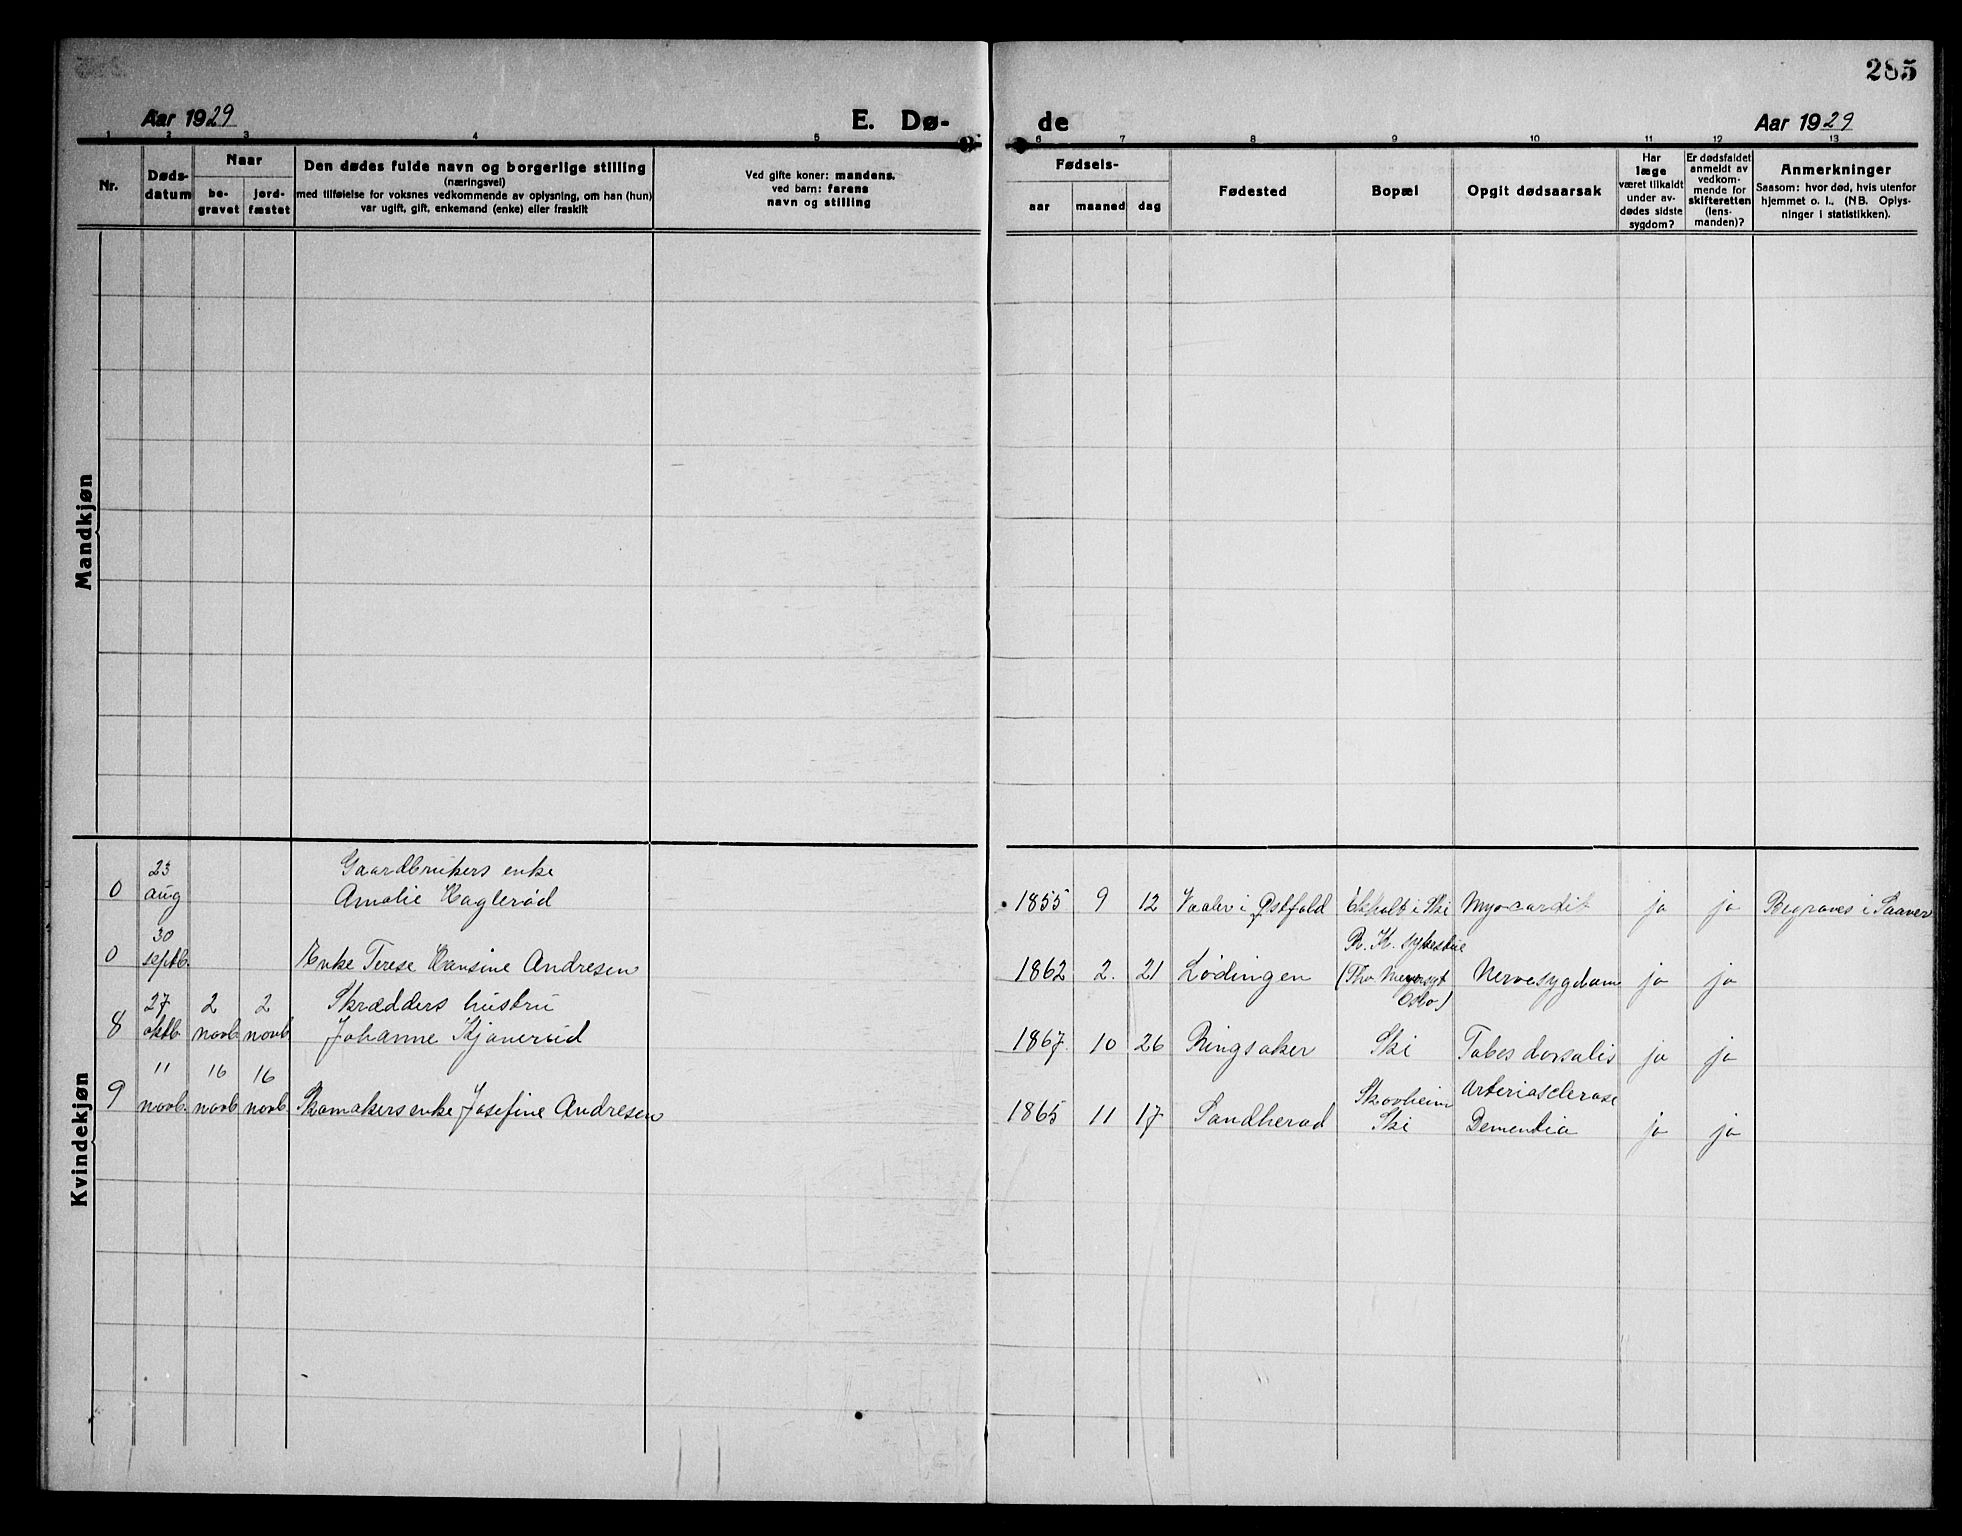 285
Aar 1929
E. Dø-
de
Aar 1929
1 2 3 4 5 6 7 8 9 10 11 12 13
Nr.
Døds-
datum
Naar
be-
gravet
jord-
fæstet
Den dødes fulde navn og borgerlige stilling
(næringsvei)
med tilføielse for voksnes vedkommende av oplysning, om han (hun)
var ugift, gift, enkemand (enke) eller fraskilt
Ved gifte koner: mandens,
ved barn: farens
navn og stilling
Fødsels-
aar
maaned
dag
Fødested
Bopæl
Opgit dødsaarsak
Har
læge
været tilkaldt
under av-
dødes sidste
sygdom?
Er dødsfaldet
anmeldt av
vedkom-
mende for
skifteretten
(lens-
manden)?
Anmerkninger
Saasom: hvor død, hvis utenfor
hjemmet o. l., (NB. Oplys-
ninger i statistikken).
Mandkjøn
Kvindekjøn
23 Gaardbrukers enke
0 aug Amalie Haglerød 1855 9 12 Vaaler i Østfold i Ski Myocardit ja ja Begraves i Saaner
30 R. K. sykestue
0 septb. Enke Terese Hansine Andresen 1862 2. 21 Lødingen (Nervesygdom ja ja
Oslo)
27 2 2 Skrædders hustru
8 oktb. novb. novb. Johanne Kjønerud 1867. 10 26 Ringsaker Ski Tabes dorsalis ja ja
11 16 16 Skovheim Arteriasclerose
9 novb. novb. novb. Skomakersenke Josefine Andresen 1865 11 17 Sandherad Ski Dementia ja ja